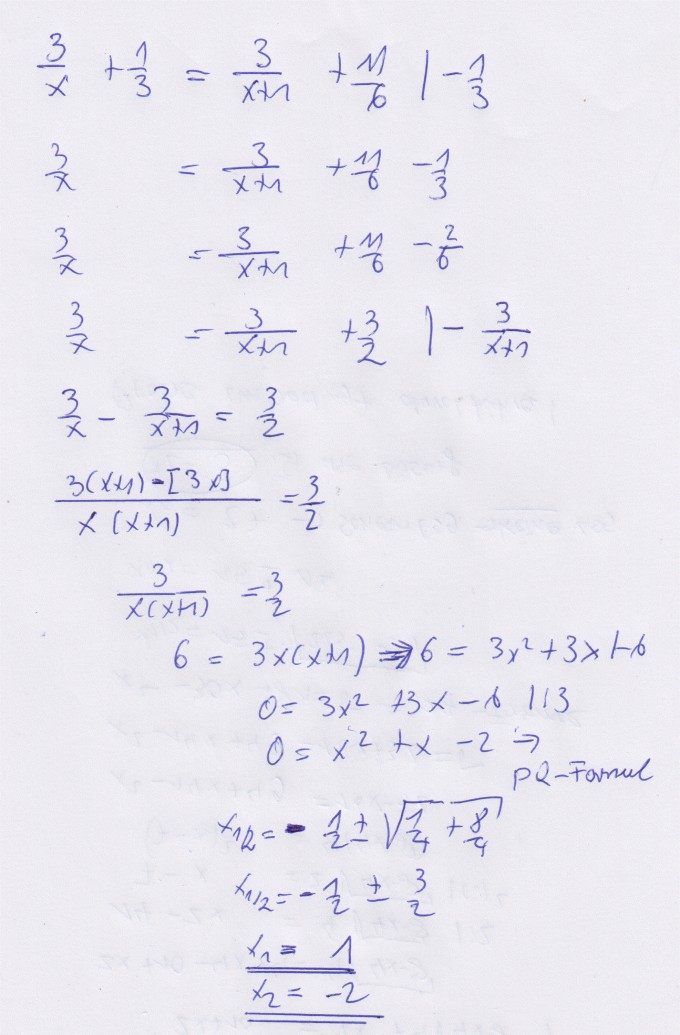 3/x + 1/3 = 3/(x+1) + 11/6 | - 1/3
3/x = 3/(x+1) + 11/6 - 1/3
3/x = 3/(x+1) + 11/6 - 2/6
3/x = 3/(x+1) + 3/2 | - 3/(x+1)
3/x - 3/(x+1) = 3/2
3(x+1) - [3x] / x(x+1) = 3/2
3/x(x+1) = 3/2
6 = 3x(x+1) ⇒ 6 = 3x² + 3x |-6
0 = 3x² + 3x - 6 |:3
0 = x² + x - 2 ⇒
PQ-Formel
x1/2 = - 1/2 ± √(1/4 + 8/4)
x1/2 = - 1/2 ± 3/2
x1 = 1
x2 = -2